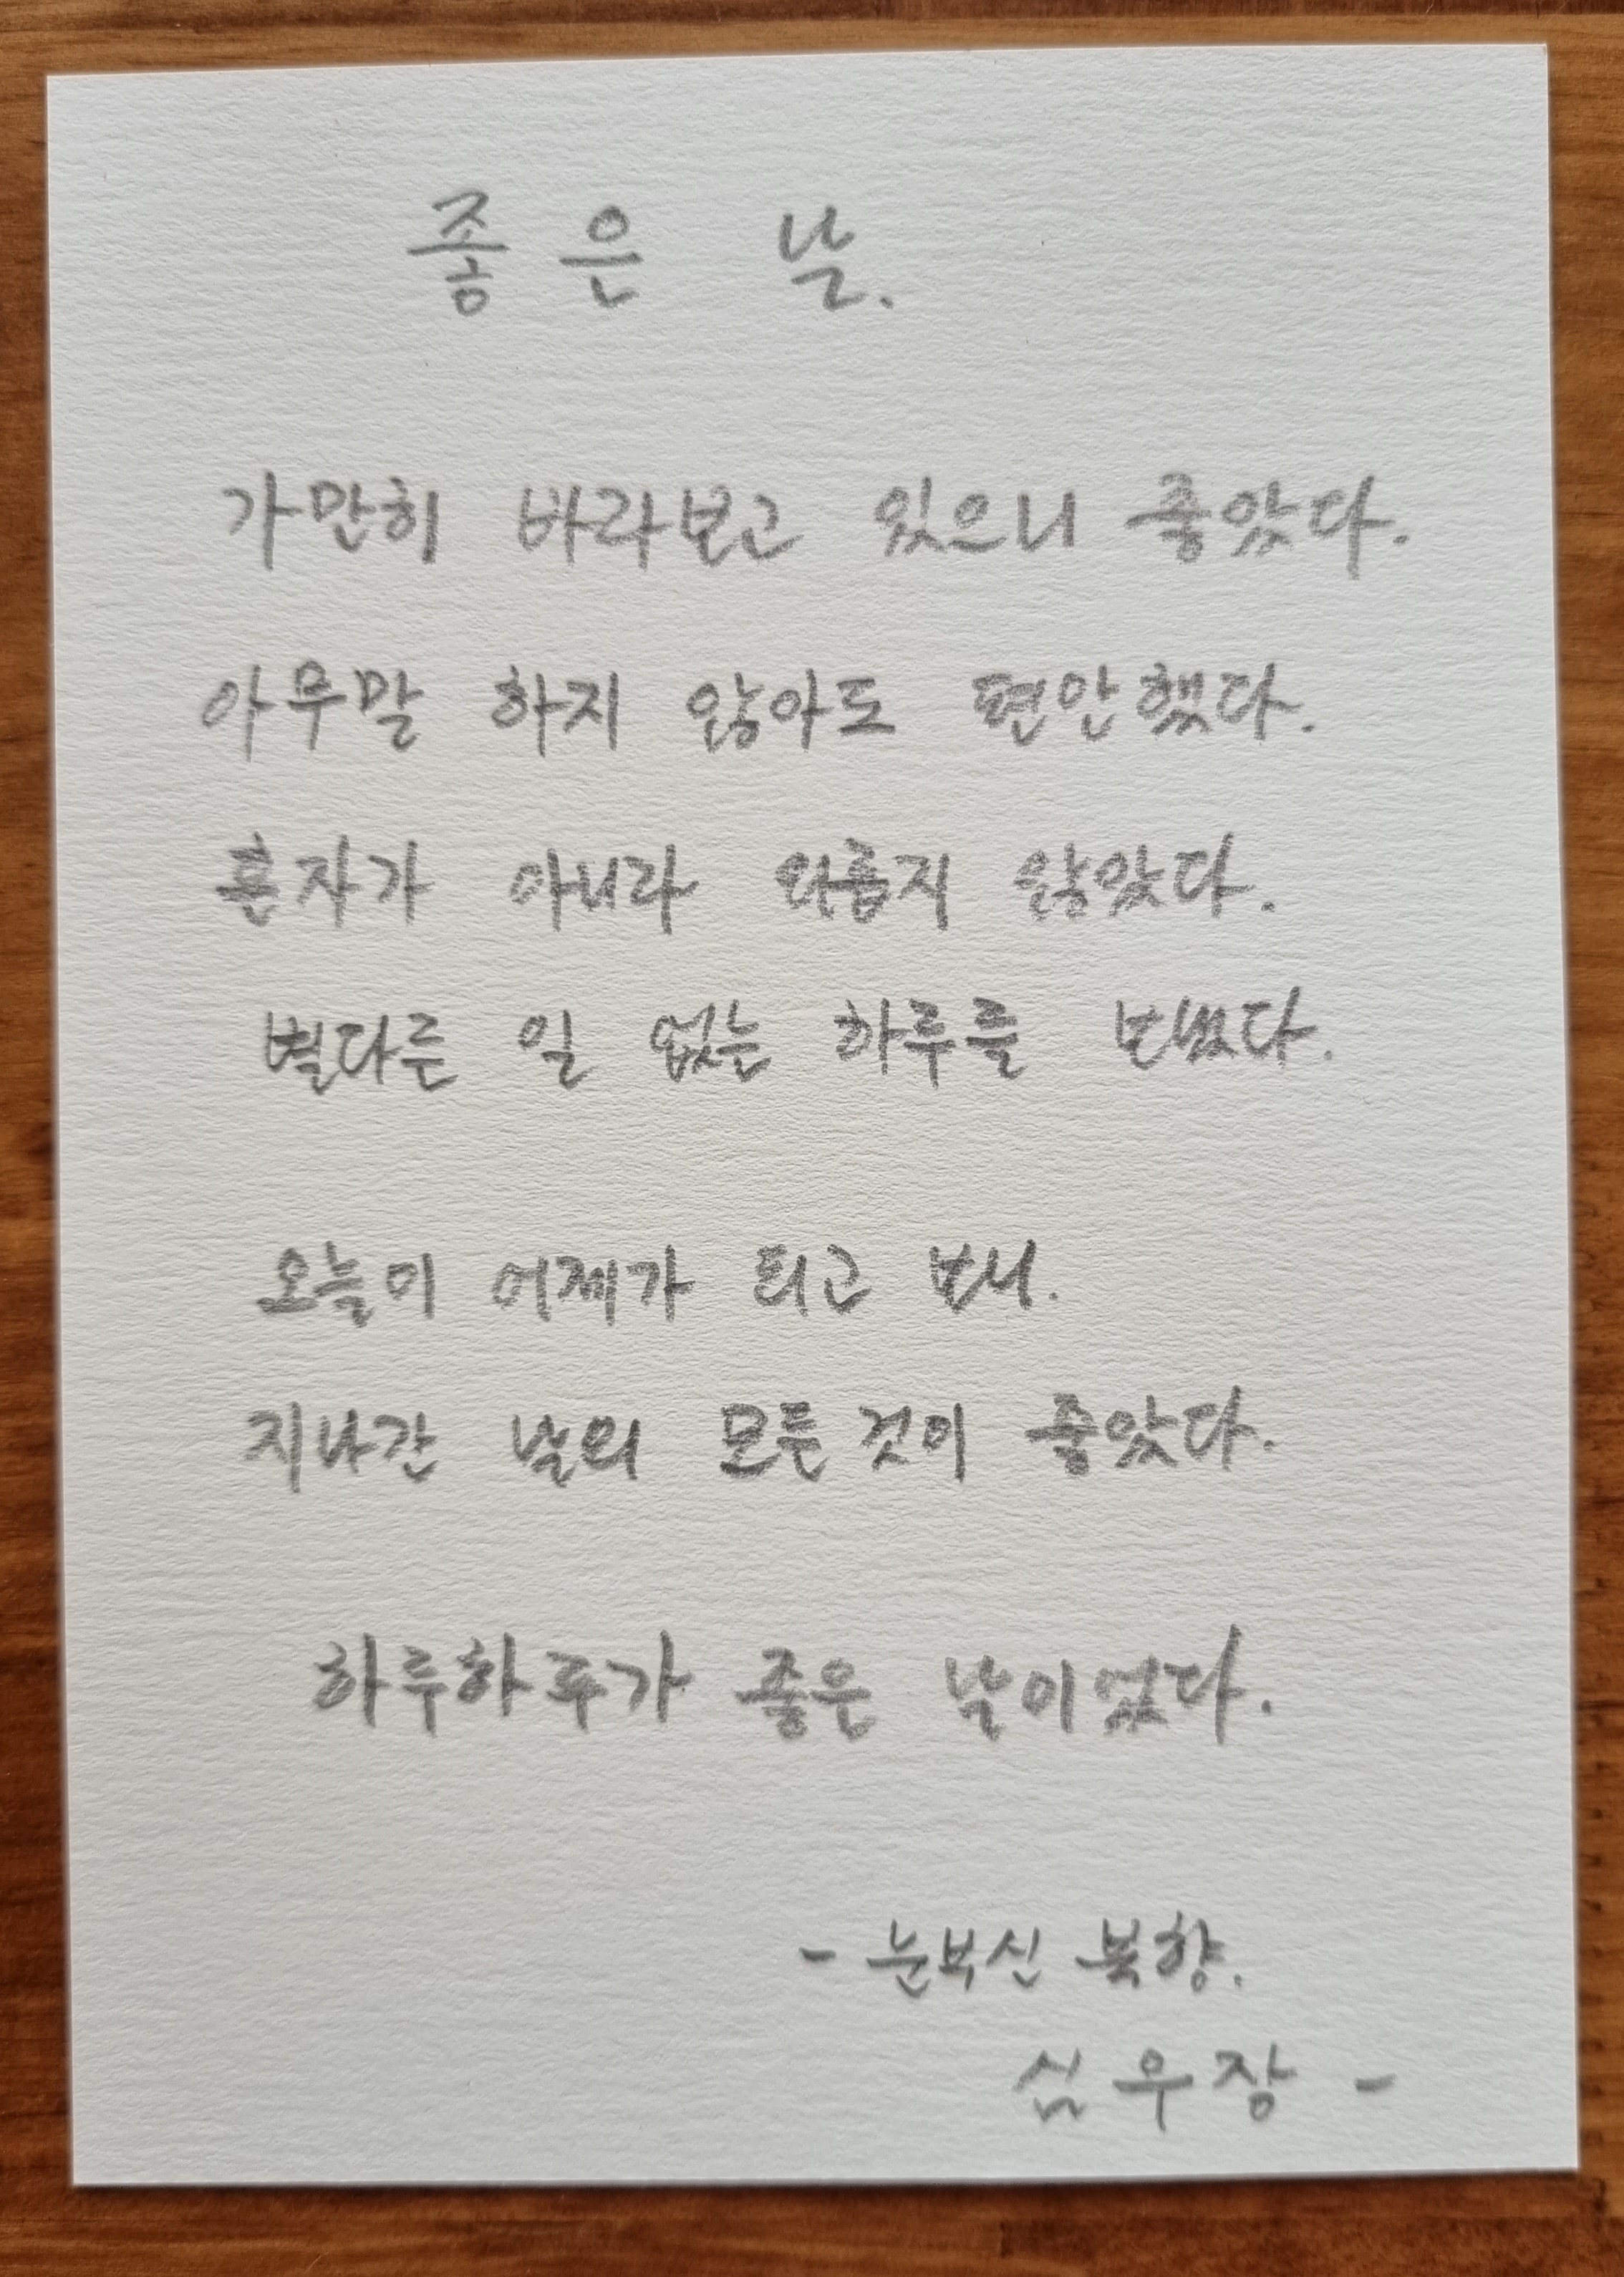 좋은 날.
가만히 바라보고 있으니 좋았다.
아무말 하지 않아도 편안했다.
혼자가 아니라 외롭지 않았다.
별다른 일 없는 하루를 보냈다.
오늘이 어제가 되고 보니.
지나간 날의 모든 것이 좋았다.
하루하루가 좋은 날이었다.
- 눈부신 북향.
심우장 -